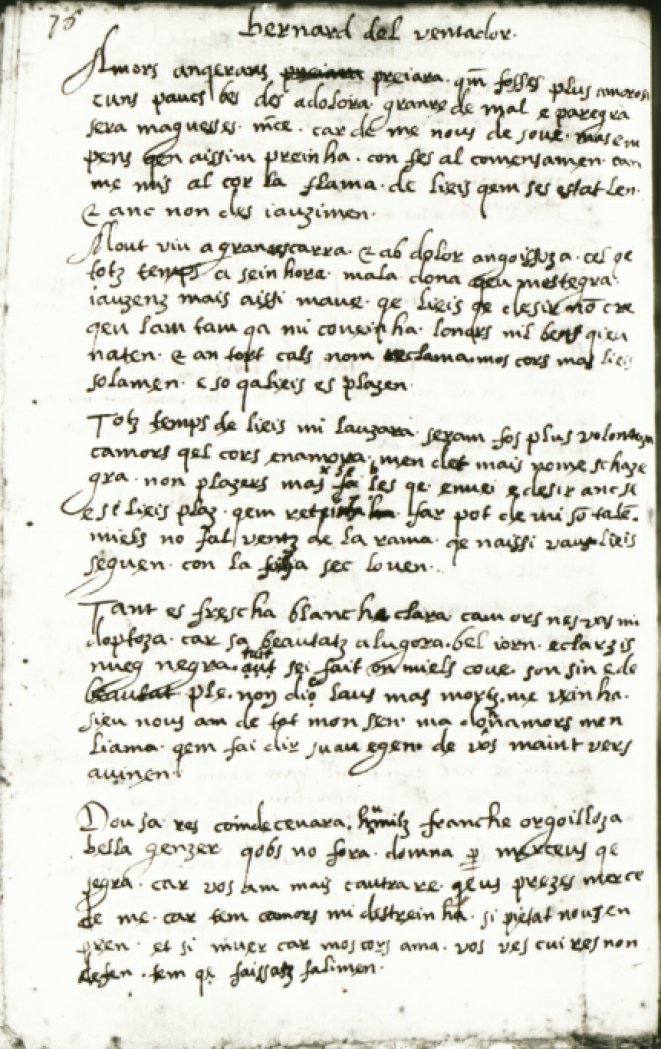 76
bernard del ventador.
Amors anqerans preiara preiara. qm̄ fosses plus amorosa
cuns paucs bēs des adolora. granre de mal e paregra
sera maguesses. m̄ce. car de me nous de soue. mas em
pens qen aissim preinha. con fes al comensamen. can
me mis al cor la flama. de lieis qem ses estat len.
& anc non des iauzimen.
Mout viu a gran escarra. & ab dolor angoissoza. cel qe
totz temps a seinhora. mala dona qeu mestegra.
iauzenz mais aissi maue. qe lieis qe desir nō cre
qeu lam tam qa mi coveinha. lonors nil bens qieu
naten. & an tort cals nom reclama. mos cors mas lieis
solamen. e so qalieis es plazen.
Totz temps de lieis mi lauzara. seram fos plus volontoza
camors qel cors enamora. men det mais nome schaze
gra. non plazers mas fa les qe enuei e desir anc se
e si lieis plaz. qem reteinha. far pot de mi sō talē.
miels no fal ventz de la rama. qe naissi vau lieis
seguen. con la foilla sec lo ven.
Tant es frescha blancha clara camors nes ves mi
doptoza. car sa beautatz alugora. bel iorn. e clarzis
nueg negra. tuit sei fait on miels coue. son fin e de
beautat ple. non dio laus mas mortz me veinha.
sieu nous am de tot mon sen. ma dōnamors men
liama. qem fai dir suau e gen. de vos maint vers
avinen.
Dousa res coindecenara. humilz franche orgoilloza
bella genzer qobs no fora. domna ꝑ merceus qe
segra. car vos am mais cautra re. qeus prezes merce
de me. car tem camors mi destreinha. si pietat nousen
pren. et si muer car mos cors ama. vos ves cui res non
defen. tem qe faissatz falimen.